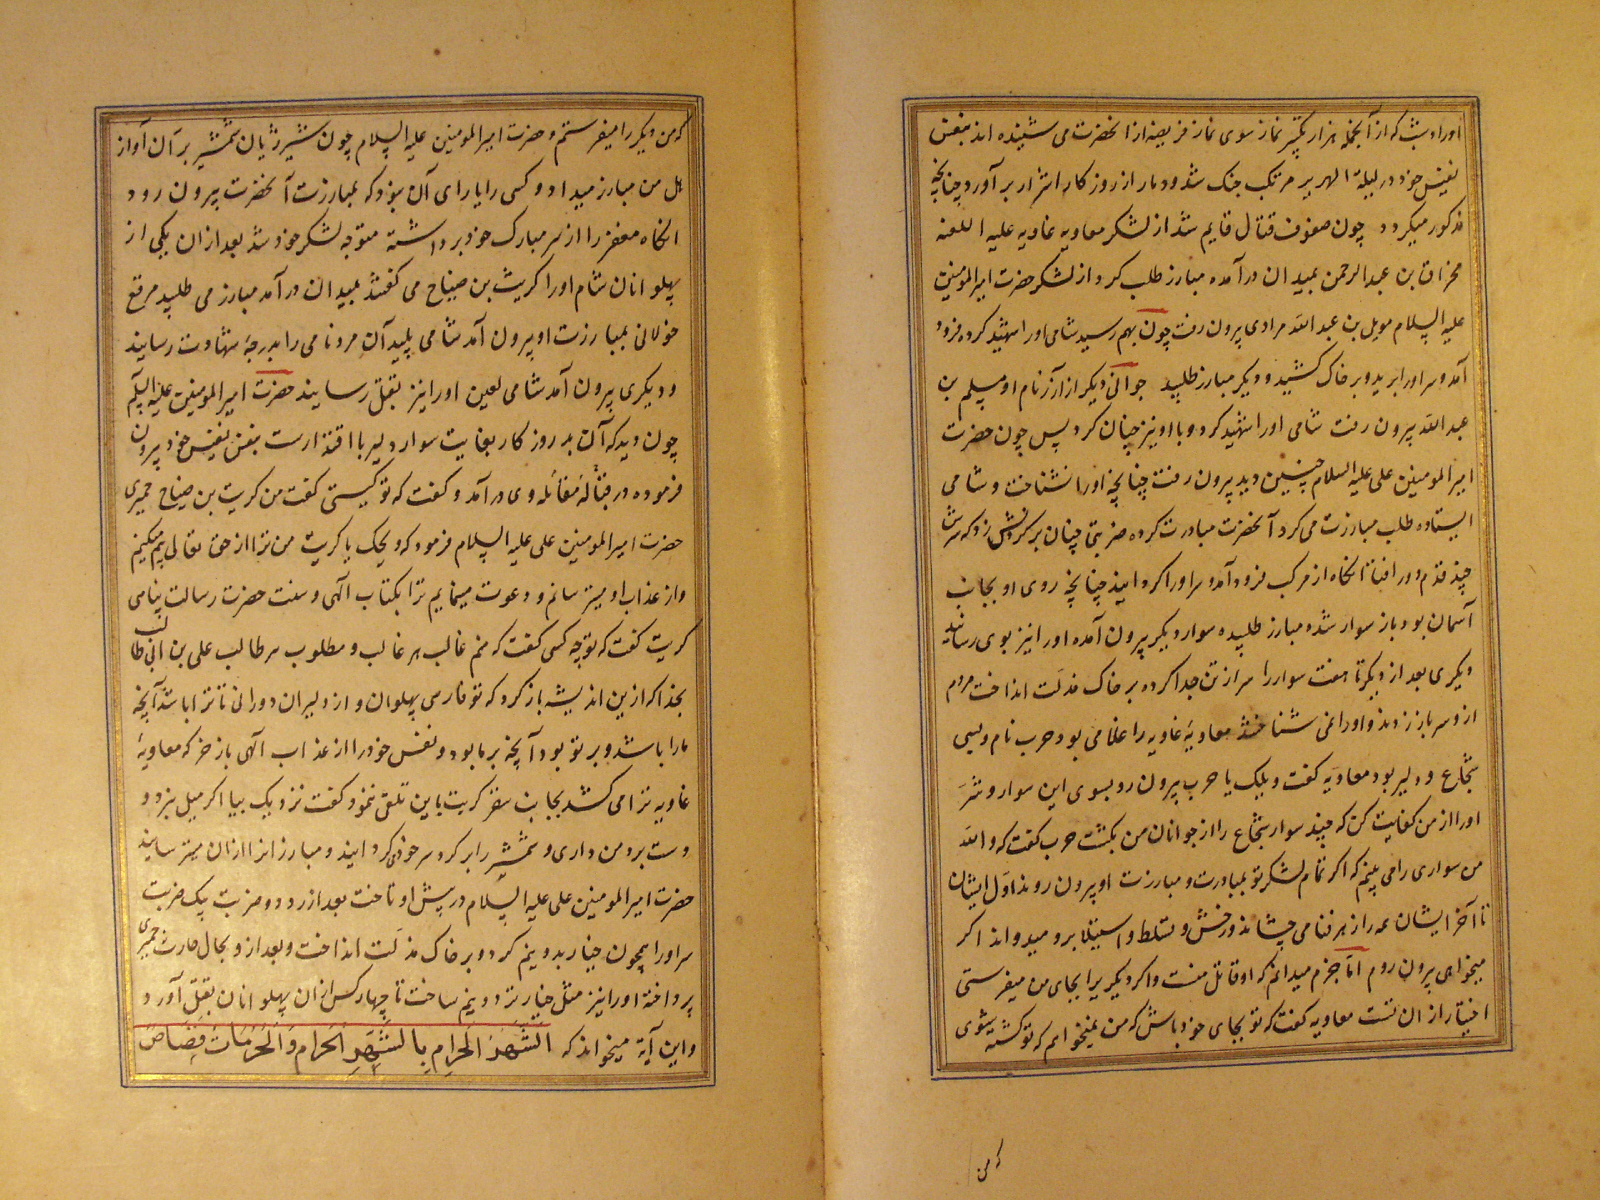 اوراد شب که از آنجمله هزار تکبیر نماز سوی نماز فریضه از آنحضرت می شنیده اند بنفس
نفیس خود در لیلة الهریر مرتکب جنک شد و دمار از روزکار اشرار بر آورد چنانچه
مذکور میکردد چون صفوف قتال قایم شد از لشکر معاویه غاویه علیه اللعنه
محراق بن عبدالرحمن بمیدان درآمده مبارز طلب کرد از لشکر حضرت امیرالمومنین
علیه السلام موبل بن عبدالله مرادی بیرون رفت چون بهم رسید شامی اورا شهید کرده فرود
آمد و سر اورا برید و بر خاک کشید و دیکر مبارز طلبید جوانی دیکر از ازد نام او مسلم بن
عبدالله بیرون رفت شامی اورا شهید کرد و با او نیز چنان کرد پس چون حضرت
امیرالمومنین علی علیه السلام چنین دید بیرون رفت چنانچه اورا نشناختند و شامی
ایستاده طلب مبارزت می کرد آنحضرت مبادرت کرده ضربتی چنان بر کردنش زد که سرش
چند قدم دور افتاد انکاه از مرکب فرود آمد و سر اورا کردانید چنانچه روی او بجانب
آسمان بود باز سوار شده مبارز طلبیده سوار دیکر بیرون آمده اورا نیز بوی رسانید
و یکری بعد از دیکر تا هفت سوار را سر از تن جدا کرده بر خاک مذلت انداخت مردم
ازو سر باز زدند و اورا نمی شناختند معاویهٔ غاویه را غلامی بود حرب نام و بسی
شجاع و دلیر بود معاویه کفت ویلک یا حرب بیرون رو بسوی این سوار و شر
اورا از من کفایت کن که چند سوار شجاع را از جوانان من بکشت حرب کفت که والله
من سواری را می بینم که اکر تمام لشکر تو بمبادرت و مبارزت او بیرون روند اول ایشان
تا آخر ایشان همه را زهر فنا می چشاند و رخش و تسلط و استیلا برو میدواند اکر
میخواهی بیرون روم اما جزم میدانم که او قاتل منست و اکر دیکریرا بجای من میفرستی
اختیار از ان تست معاویه کفت که تو بجای خود باش که من نمیخواهم که تو کشته شوی
که من
که من دیکر را میفرستم و حضرت امیرالمومنین علیه السلام چون شیر ژیان شمشیر بر آن آواز
هل من مبارز میداد و کسی را یارای آن نبود که بمبارزت آنحضرت بیرون رود
انکاه مغفر را از سر مبارک خود برداشته متوجه لشکر خود شد بعد از ان یکی از
پهلوانان شام اورا کریث بن صباح می کفتند بمیدان درآمد مبارز می طلبید مرقع
خولانی بمبارزت او بیرون آمد شامی پلید آن مرد نامی را بدرجهٔ شهادت رسانید
و دیکری بیرون آمد شامی لعین اورا نیز بقتل رسانید حضرت امیرالمومنین علیه السلام
چون دید که آن بد روزکار بغایت سوار دلیر با اقتدارست بنفس نفیس خود بیرون
فرموده در قبالهٔ مقاتلهٔ وی درآمد و کفت که تو کیستی کفت من کریث بن صباح حمیری
حضرت امیرالمومنین علی علیه السلام فرمود که ویحک یا کریث من ترا از حق تعالی بیم میکنم
و از عذاب او میترسانم و دعوت مینمایم ترا بکتاب الهی و سنت حضرت رسالت پناهی
کریث کفت که تو چه کسی کفت که منم غالب هر غالب و مطلوب هر طالب علی بن ابی طالب
بخدا که ازین اندیشه باز کرد که تو فارسی پهلوان و از دلیران دورانی تا ترا باشد آنچه
مارا باشد و بر تو بود آنچه بر ما بود و نفس خود را از عذاب الهی باز خر که معاویهٔ
غاویه ترا می کشد بجانب سقر کریث باین تملق نمود و کفت نزدیک بیا اکر میل نبرد و
دست برد من داری و شمشیر را بر کرد سر خود می کردانید و مبارزانرا از ان میترسانید
حضرت امیرالمومنین علی علیه السلام در پیش او تاخت بعد از رد دو ضربت بیک ضربت
سر اورا همچون خیار بدو نیم کرد و بر خاک مذلت انداخت و بعد ازو بحال حارث حمیری
پرداخته اورا نیز مثل خیار تر دو نیم ساخت تا چهار کس از ان پهلوانان بقتل آورد و
و این آیة میخواند که الشَّهْرُ الْحَرامِ بِالشَّهْرِ الْحَرامِ وَالْحُرُماتُ قِصَاص